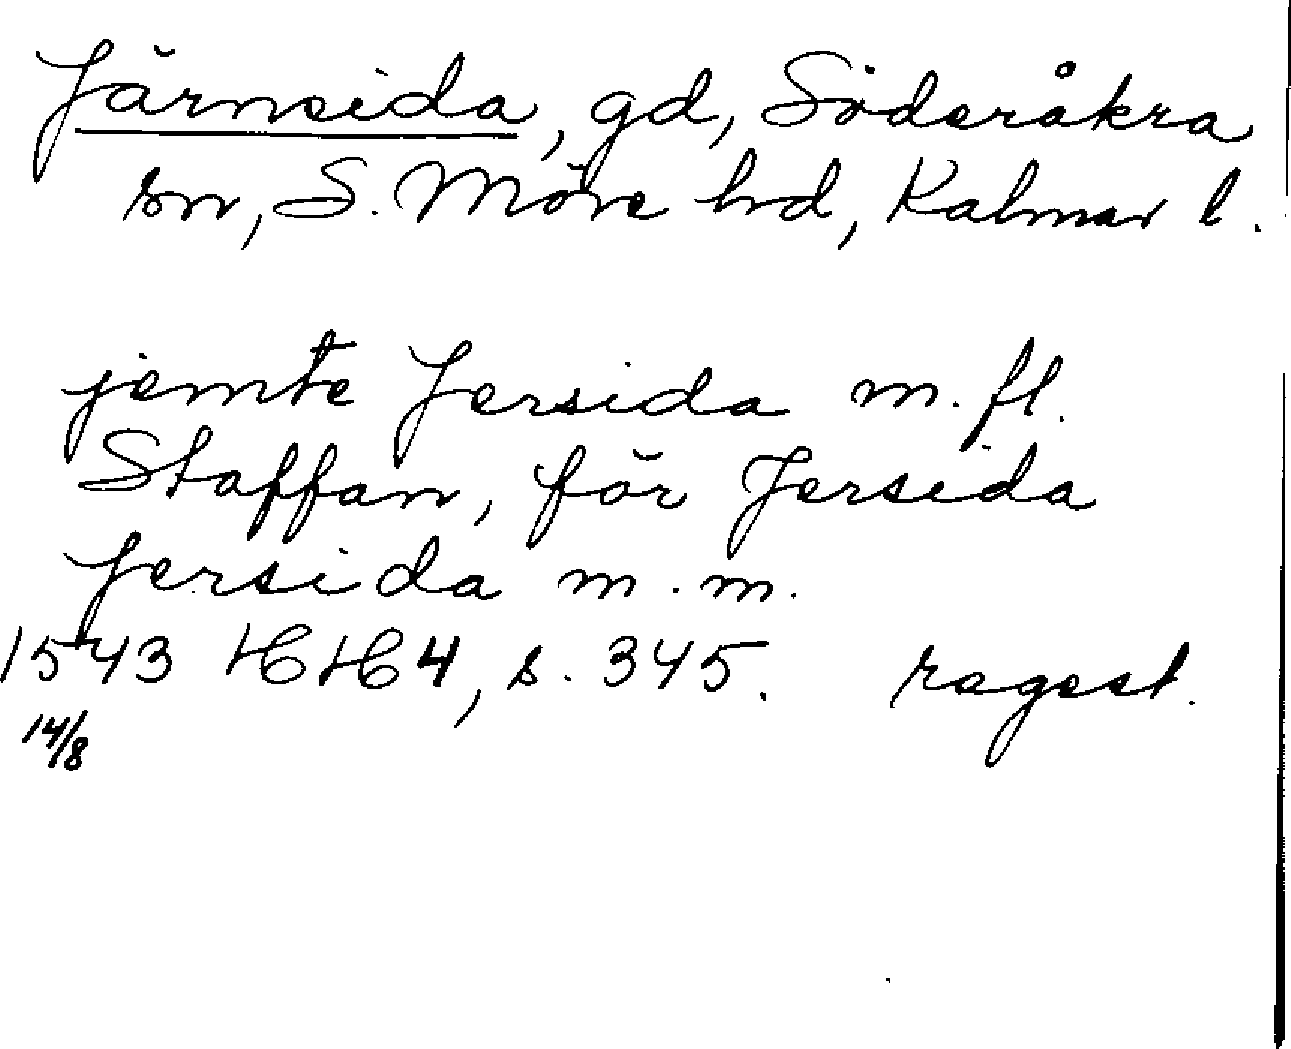 Järnsida, gd, Söderåkra
sn, S. Möre hd, Kalmar l.
jemte Jersida m. fl.
Staffan, för Jersida
Jersida m. m.
1543 HH4, s. 345. regest.
14/8